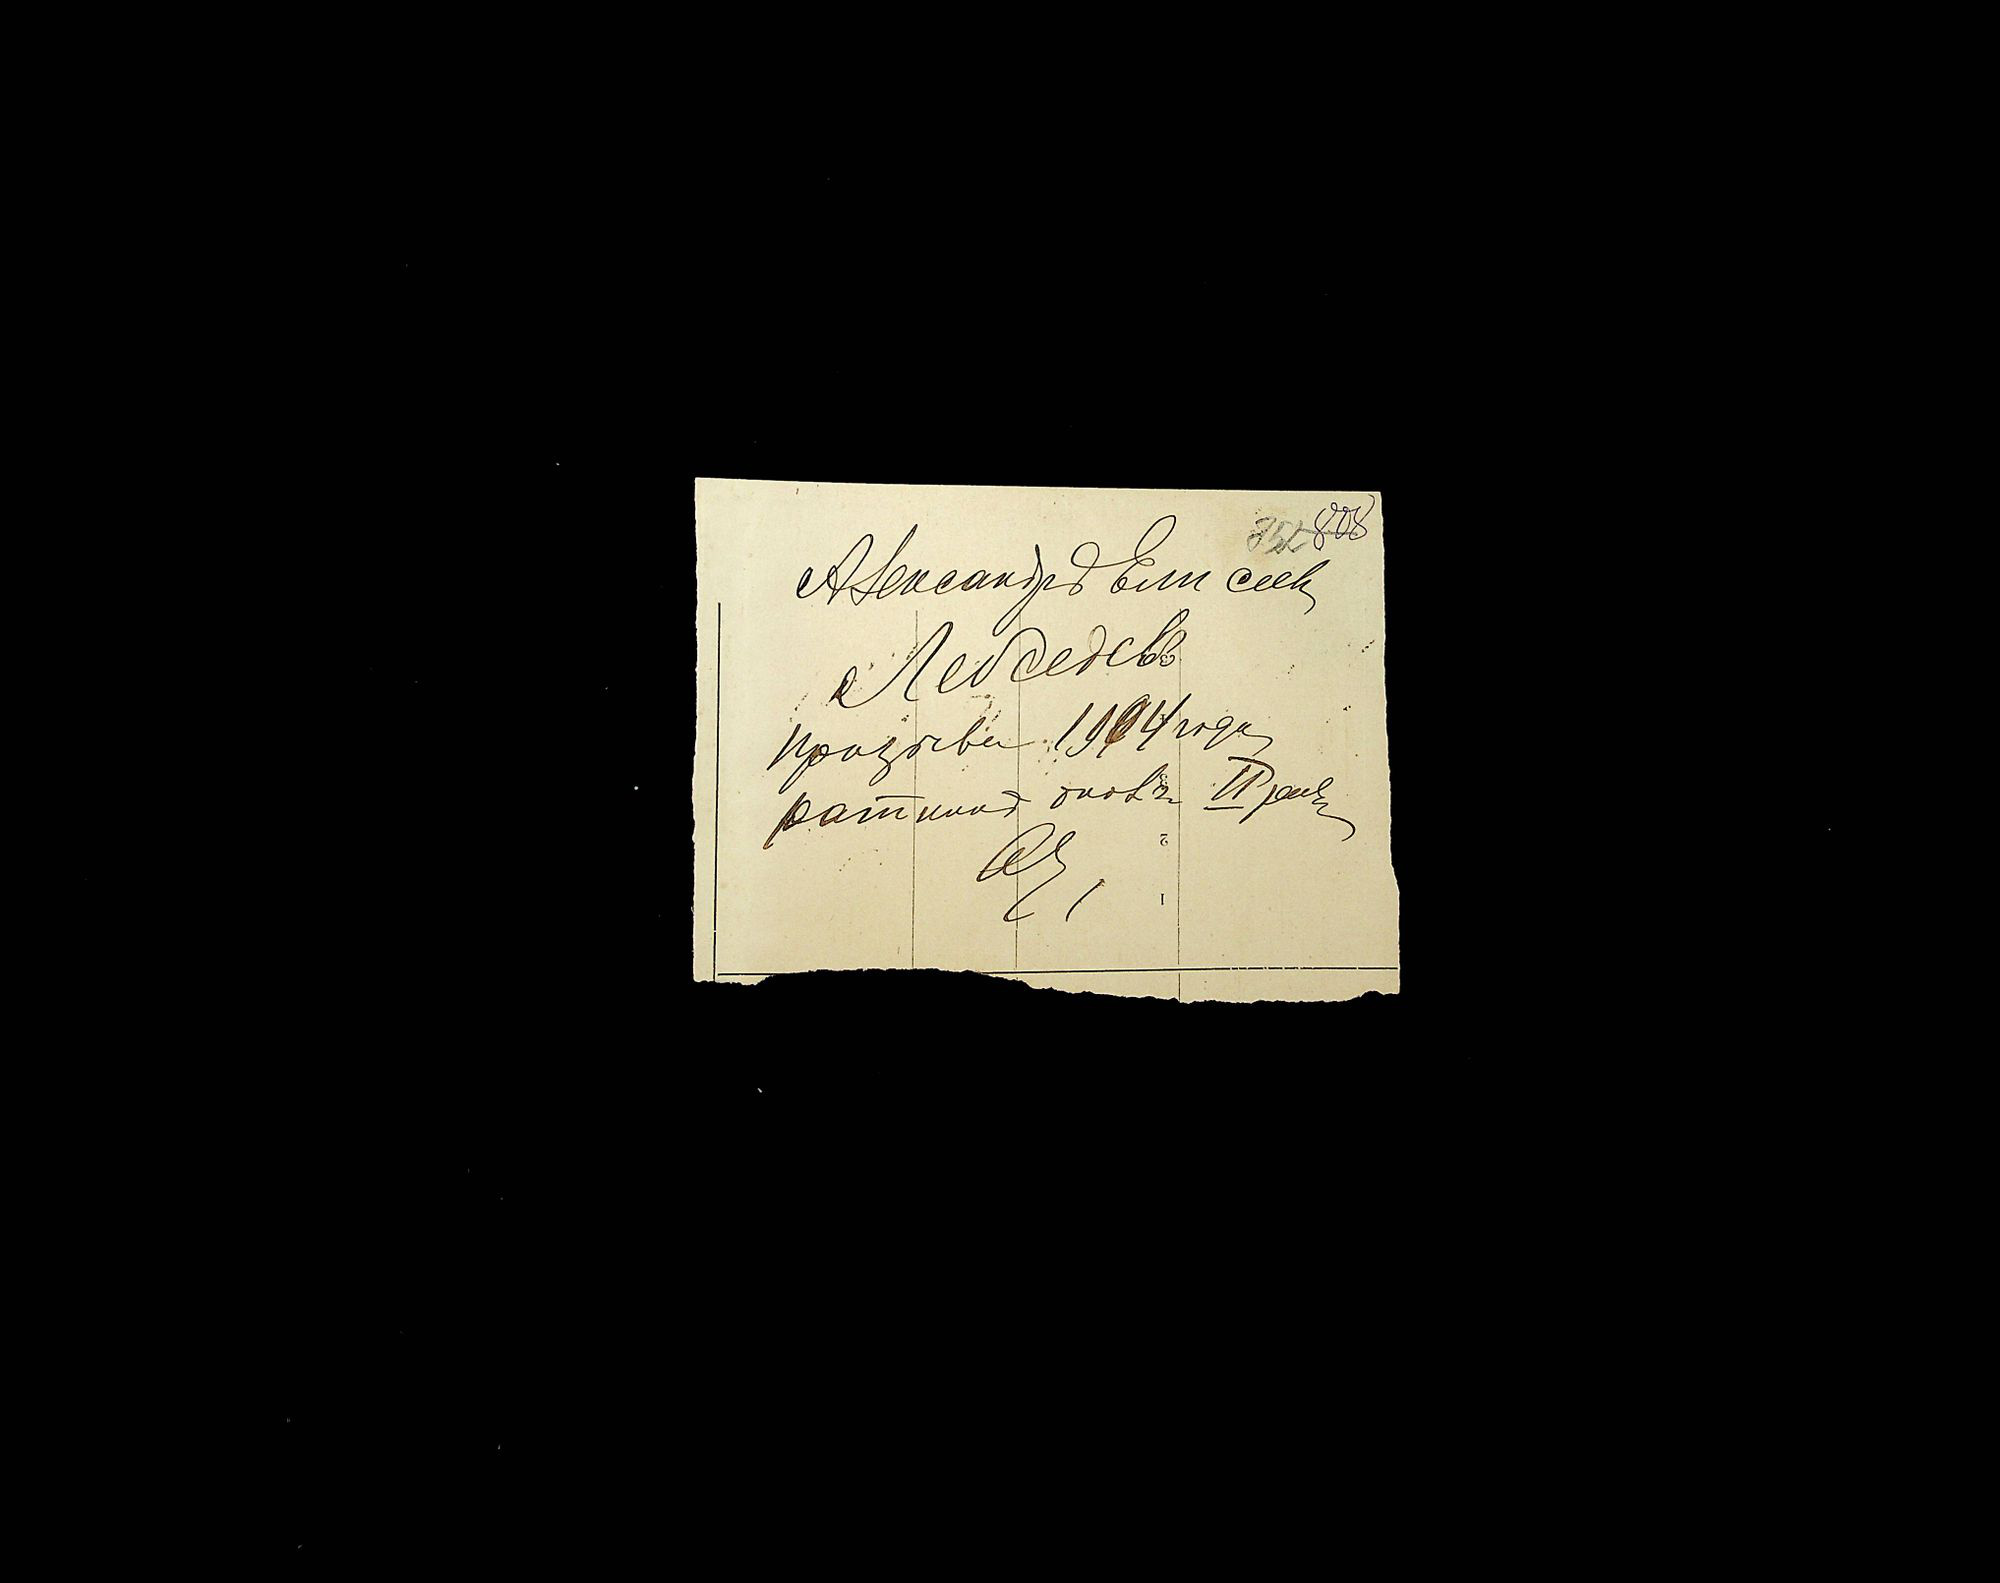 808
Александръ Елисеев
Лебедевъ
призыва 1904 года
ратникъ II раз
3
3
2
1